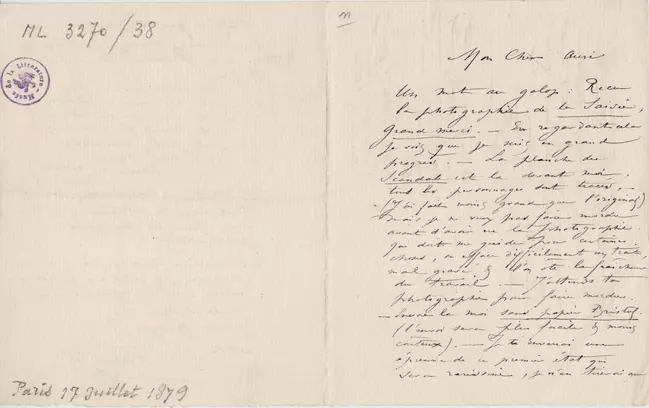 ML 3270/38
Musée de la Littérature
Paris 17 Juillet 1879
Mon Cher ami
Un mot au galop : Recu
la photographie de la Saisie,
Grand merci. — En regardant cela
je vois que je suis en grand
progrès. — La planche du
Scandale est là devant moi,
tous les personnages sont tracés, —
(J'ai fait moins grand que l'original)
mais je ne veux pas faire mordre
avant d'avoir eu la photographie
qui doit me guider pour certaines
choses, on efface difficilement un trait
mal gravé & l'on ôte la fraîcheur
du travail. — J'attends ta
photographie pour faire mordre.
— Envoie la moi sans papier Bristol
(l'envoi sera plus facile & moins
coûteux). — Je t'enverrai une
épreuve de ce premier état qui
sera rarissime, je n'en tirerai que